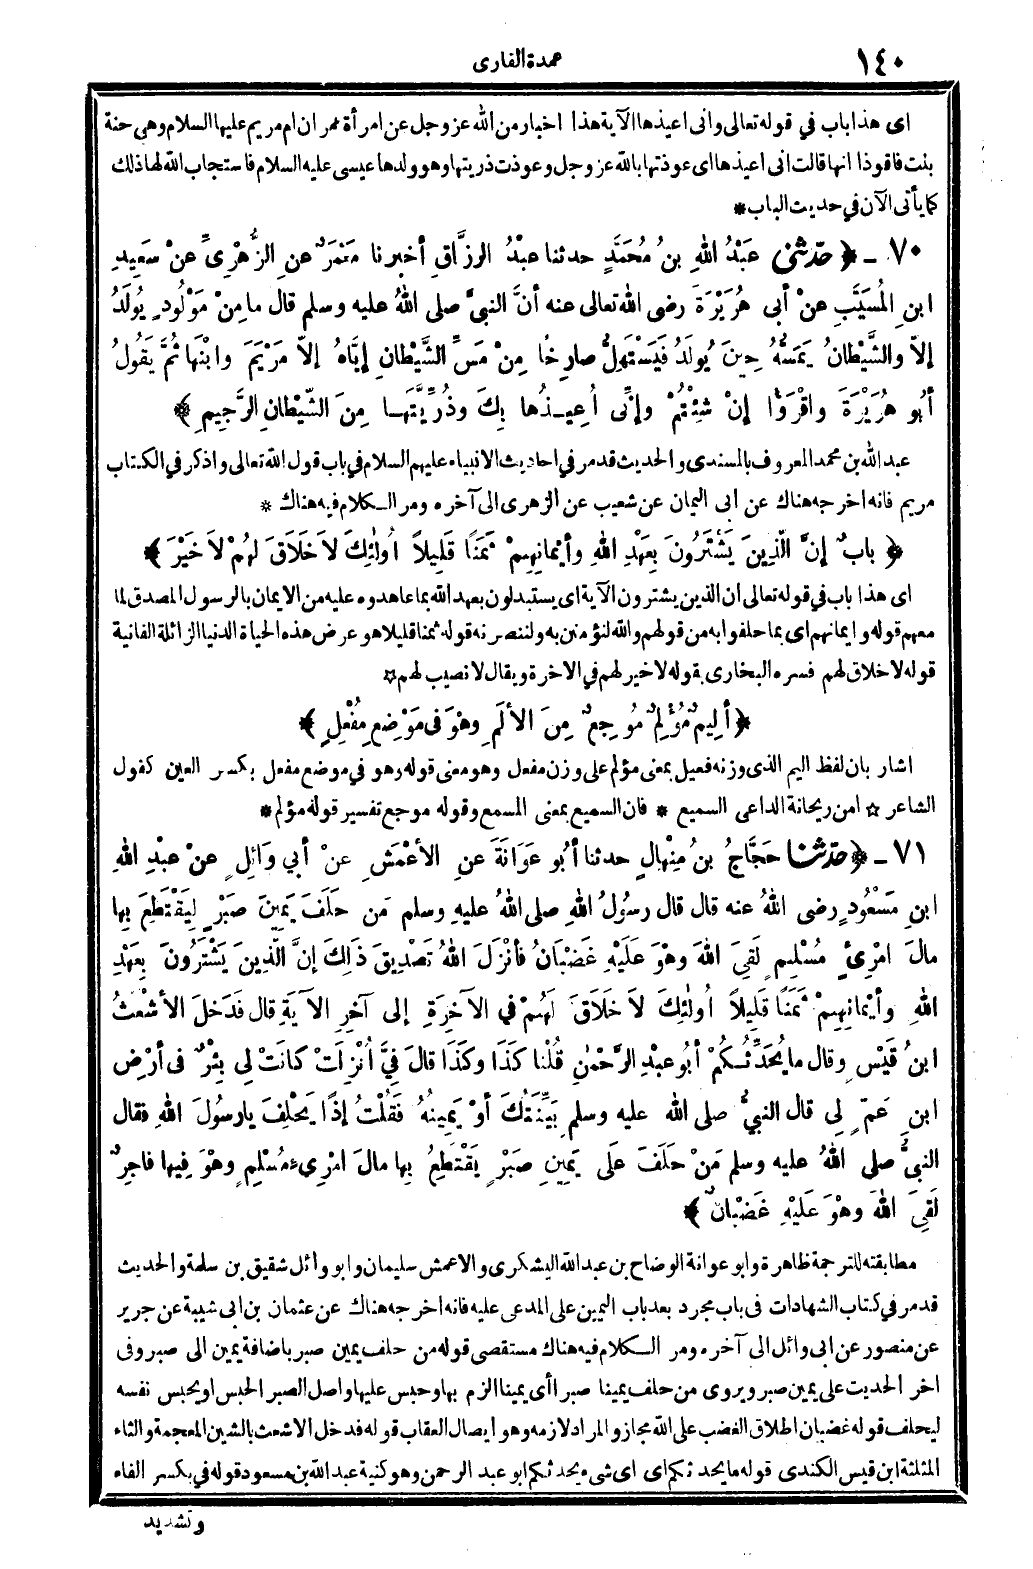 ١٤٠
عمدة القارى
اى هذا باب في قوله تعالى وانى اعيذها الآية هذا اخبار من الله عز وجل عن امرأة عمران ام مريم عليها السلام وهي حنة
بنت فاقوذا انها قالت انى اعيذها اى عوذتها بالله عز وجل وعوذت ذريتها وهو ولدها عيسى عليه السلام فاستجاب الله لها ذلك
كما يأتى الآن في حديث الباب *
٧٠ - ﴿ حدّثنى عَبْدُ اللهِ بنُ مُحَمَّدٍ حدثنا عبْدُ الرزَّاقِ أخبرنا مَعْمَرٌ عنِ الزُّهْرِىِّ عنْ سَعِيدِ
ابنِ المُسَيَّبِ عنْ أبى هُرَيْرَةَ رضى الله تعالى عنه أنَّ النبىَّ صلى اللهُ عليه وسلم قال ما مِنْ مَوْلُودٍ يُولَدُ
إلاّ والشَّيْطانُ يَمَسُّهُ حِينَ يُولَدُ فَيَسْتَهِلُّ صارِخًا مِنْ مَسِّ الشَّيْطانِ إيَّاهُ إلاّ مَرْيَمَ وابْنَهَا ثُمَّ يَقُولُ
أبُو هُرَيْرَةَ واقْرَؤُا إنْ شِئْتُمْ وإنِّى أُعِيذُها بِكَ وذُرِّيَّتَها مِنَ الشّيْطانِ الرَّجِيمِ ﴾
عبد الله بن محمد المعروف بالمسندى والحديث قد مر في احاديث الانبياء عليهم السلام في باب قول الله تعالى واذكر في الكتاب
مريم فانه اخرجه هناك عن ابى اليمان عن شعيب عن الزهرى الى آخره ومر الكلام فيه هناك *
﴿ بابٌ إنَّ الّذِينَ يَشْتَرُونَ بِعَهْدِ اللهِ وأيْمانِهِمْ ثَمَنًا قَلِيلاً أُولٰئِكَ لاَ خَلاَقَ لهُمْ لاَ خَيْرَ ﴾
اى هذا باب في قوله تعالى ان الذين يشترون الآية اى يستبدلون بعهد الله بما عاهدوه عليه من الايمان بالرسول المصدق لما
معهم قوله وايمانهم اى بما حلفوا به من قولهم والله لنؤمنن به ولننصرنه قوله ثمنا قليلا هو عرض هذه الحياة الدنيا الزائلة الفانية
قوله لا خلاق لهم فسره البخارى بقوله لا خير لهم في الاخرة ويقال لا نصيب لهم ☆
﴿ أليمٌ مُؤْلِمٌ مُوجِعٌ مِنَ الألَمِ وهْوَ فى مَوْضِعِ مُفْعِلٍ ﴾
اشار بان لفظ اليم الذى وزنه فعيل بمعنى مؤلم على وزن مفعل وهو معنى قوله وهو في موضع مفعل بكسر العين كقول
الشاعر ☆ امن ريحانة الداعى السميع * فان السميع بمعنى المسمع وقوله موجع تفسير قوله مؤلم *
٧١ - ﴿ حدّثنا حَجَّاجُ بنُ مِنْهالٍ حدثنا أبُو عَوَانَةَ عنِ الأعْمَشِ عنْ أبي وَائِلٍ عنْ عبْدِ اللهِ
ابنِ مَسْعُودٍ رضى اللهُ عنه قال قال رسولُ اللهِ صلى اللهُ عليهِ وسلم مَن حَلَفَ يَمِينَ صَبْرٍ لِيَقْتَطِعَ بِها
مالَ امْرِئٍ مُسْلِمٍ لَقِىَ اللهَ وهْوَ عَلَيْهِ غَضْبَانُ فأنْزَلَ اللهُ تَصْدِيقَ ذَالِكَ إنَّ الّذِينَ يَشْتَرُونَ بِعَهْدِ
اللهِ وأيْمانِهِمْ ثَمَنًا قَلِيلاً أُولٰئِكَ لاَ خَلاَقَ لَهُمْ في الآخِرَةِ إلى آخِرِ الآيَةِ قال فَدَخلَ الأشْعَثُ
ابنُ قَيْسٍ وقال ما يُحَدِّثُكُمْ أبُو عبْدِ الرَّحْمٰنِ قُلْنا كَذَا وكَذَا قالَ فِيَّ أُنْزِلَتْ كانَتْ لِى بِئْرٌ فى أرْضِ
ابنِ عَمّ لِى قال النبىُّ صلى الله عليه وسلم بَيِّنَتُكَ أوْ يَمِينُهُ فَقُلْتُ إذًا يَحْلِفَ يارسولَ اللهِ فقال
النبىُّ صلى اللهُ عليه وسلم مَنْ حَلَفَ علَى يَمِينِ صَبْرٍ يَقْتَطِعُ بِها مالَ امْرِىءٍ مُسْلِمٍ وهْوَ فِيها فاجِرٌ
لَقِىَ اللهَ وهْوَ عَلَيْهِ غَضْبَانٌ ﴾
مطابقته للترجمة ظاهرة وابو عوانة الوضاح بن عبد الله اليشكرى والاعمش سليمان وابو وائل شقيق بن سلمة والحديث
قد مر في كتاب الشهادات فى باب مجرد بعد باب اليمين على المدعى عليه فانه اخرجه هناك عن عثمان بن ابى شيبة عن جرير
عن منصور عن ابى وائل الى آخره ومر الكلام فيه هناك مستقصى قوله من حلف يمين صبر باضافة يمين الى صبر وفى
اخر الحديث على يمين صبر ويروى من حلف يمينا صبرا أى يمينا الزم بها وحبس عليها واصل الصبر الحبس او يحبس نفسه
ليحلف قوله غضبان اطلاق الغضب على الله مجاز والمراد لازمه وهو ايصال العقاب قوله فدخل الاشعث بالشين المعجمة والثاء
المثلثة ابن قيس الكندى قوله ما يحدثكم اى اى شىء يحدثكم ابو عبد الرحمن وهو كنية عبد الله بن مسعود قوله في بكسر الفاء
وتشديد